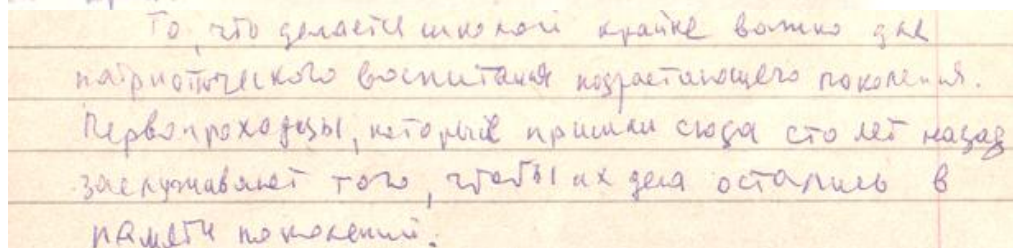 То, что делается школой крайне важно для
патриотического воспитания подрастающего поколения.
Первопроходцы, которые пришли сюда сто лет назад
заслуживают того, чтобы их дела остались в
памяти поколений.